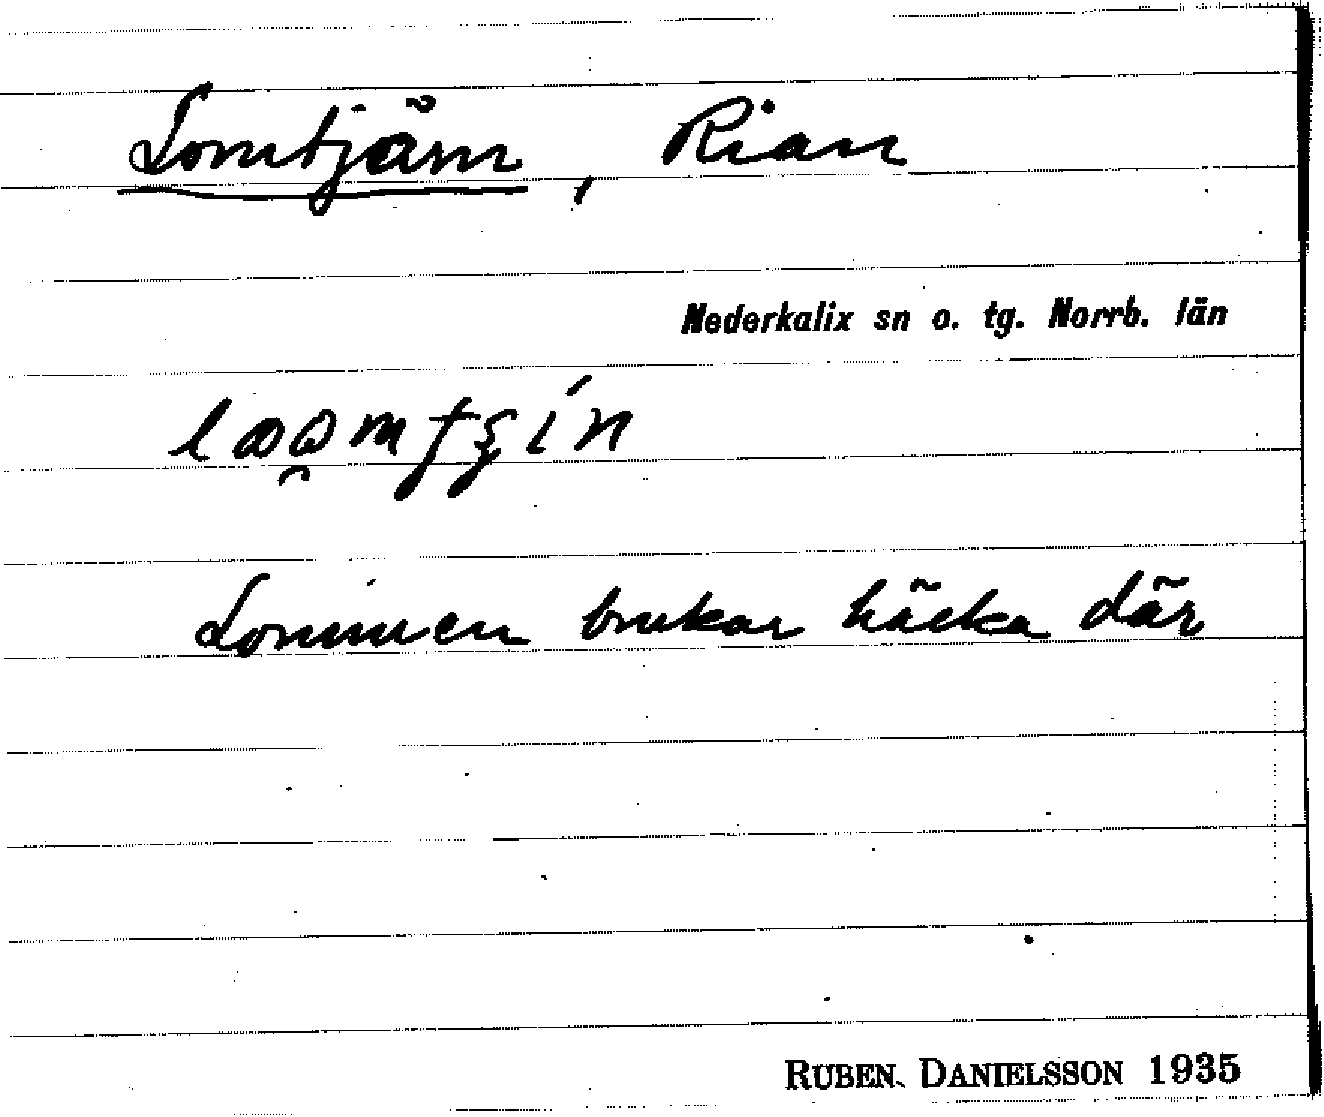 Lomtjärn, Rian
Nederkalix sn o. tg. Norrb. län
Lommen brukar häcka där
RUBEN DANIELSSON 1935